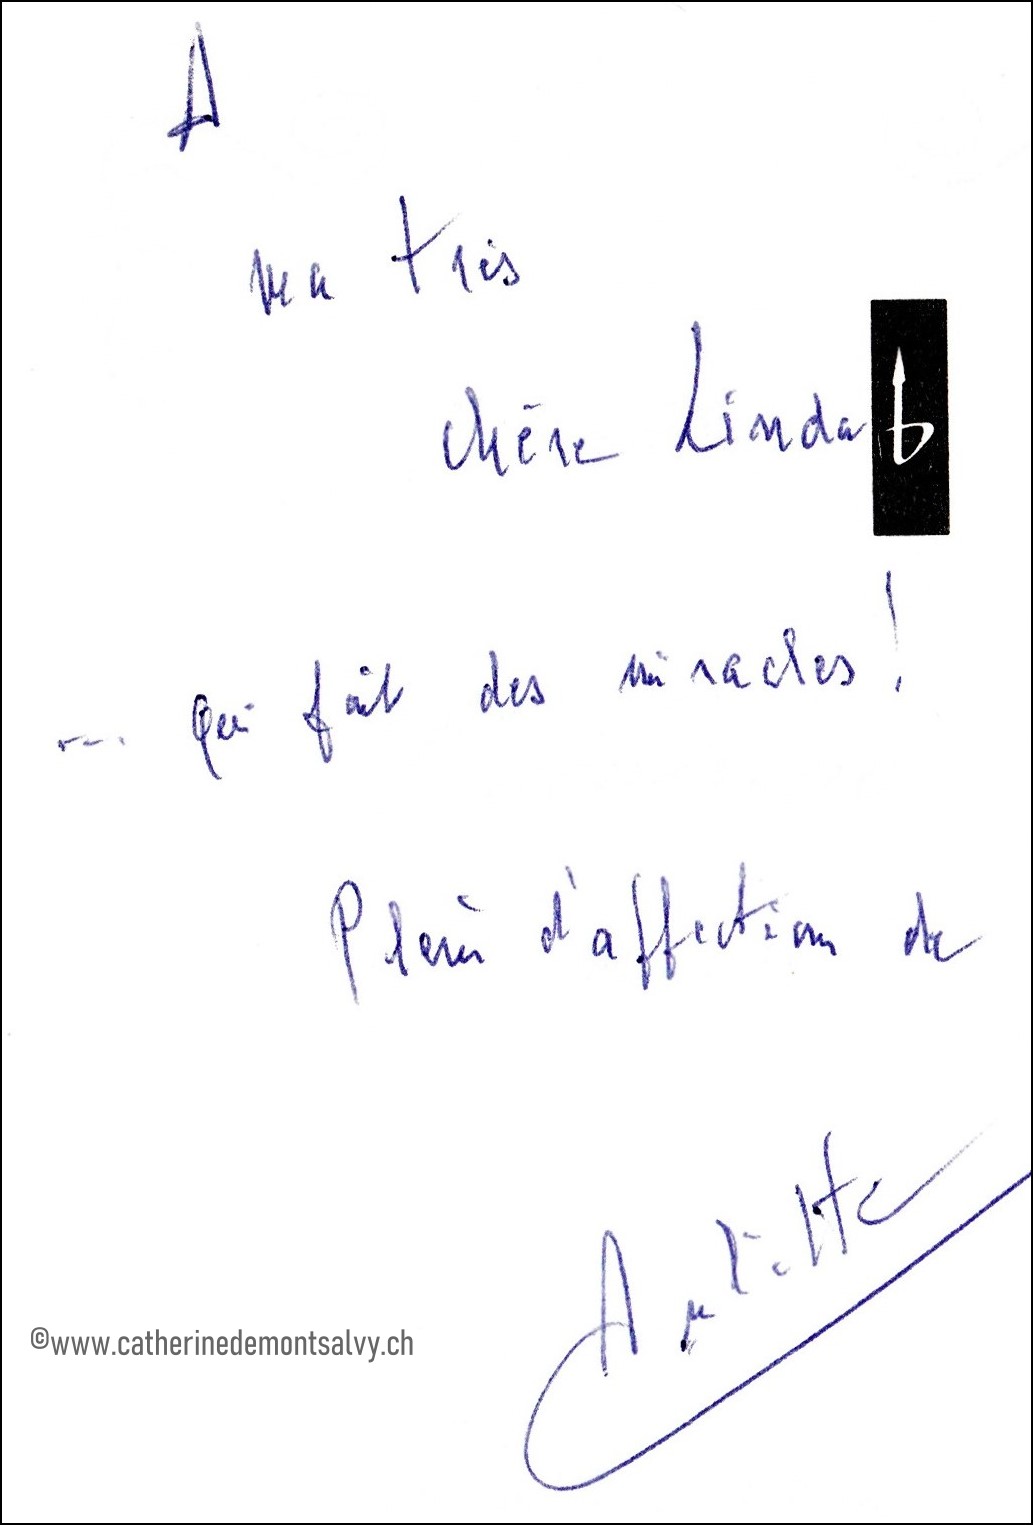 A
ma très
chère Linda
... qui fait des miracles !
Plein d'affection de
Juliette
©www.catherinedemontsalvy.ch